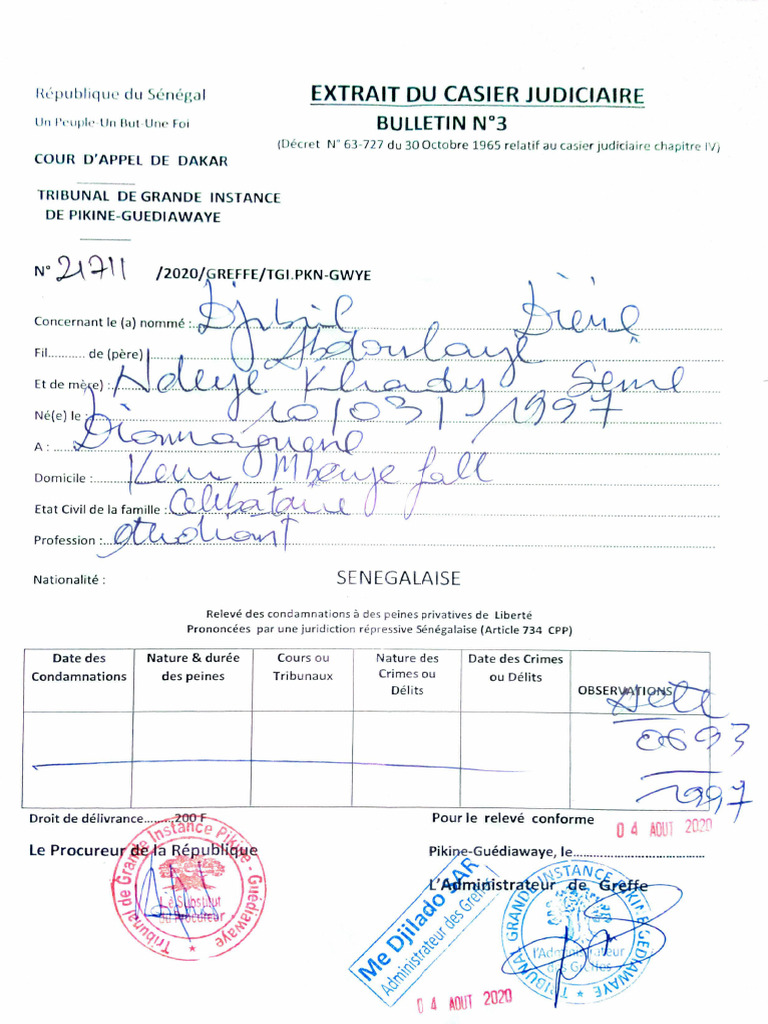 République du Sénégal
Un Peuple-Un But-Une Foi
COUR D'APPEL DE DAKAR
TRIBUNAL DE GRANDE INSTANCE
DE PIKINE-GUEDIAWAYE
EXTRAIT DU CASIER JUDICIAIRE
BULLETIN N°3
(Décret N° 63-727 du 30 Octobre 1965 relatif au casier judiciaire chapitre IV)
N° 21711 /2020/GREFFE/TGI.PKN-GWYE
Concernant le (a) nommé : Djibril Diène
Fil........... de (père) Abdoulaye
Et de mère) : Ndeye Khady Sene
Né(e) le : 10/03/1997
A : Diamaguene
Domicile : Keur Mbaye fall
Etat Civil de la famille : Celibataire
Profession : etudiant
Nationalité : SENEGALAISE
Relevé des condamnations à des peines privatives de Liberté
Prononcées par une juridiction répressive Sénégalaise (Article 734 CPP)
Date des Condamnations Nature & durée des peines Cours ou Tribunaux Nature des Crimes ou Délits Date des Crimes ou Délits OBSERVATIONS
0693
1997
Droit de délivrance..........200 F
Pour le relevé conforme
04 AOUT 2020
Le Procureur de la République
Pikine-Guédiawaye, le
L'Administrateur de Greffe
Tribunal de Grande Instance Pikine - Guédiawaye
Le Substitut
du Procureur
Me Djilado SAR
Administrateur des Greffes
TRIBUNAL GRANDE INSTANCE PIKINE GUEDIAWAYE
l'Administrateur
des Greffes
04 AOUT 2020